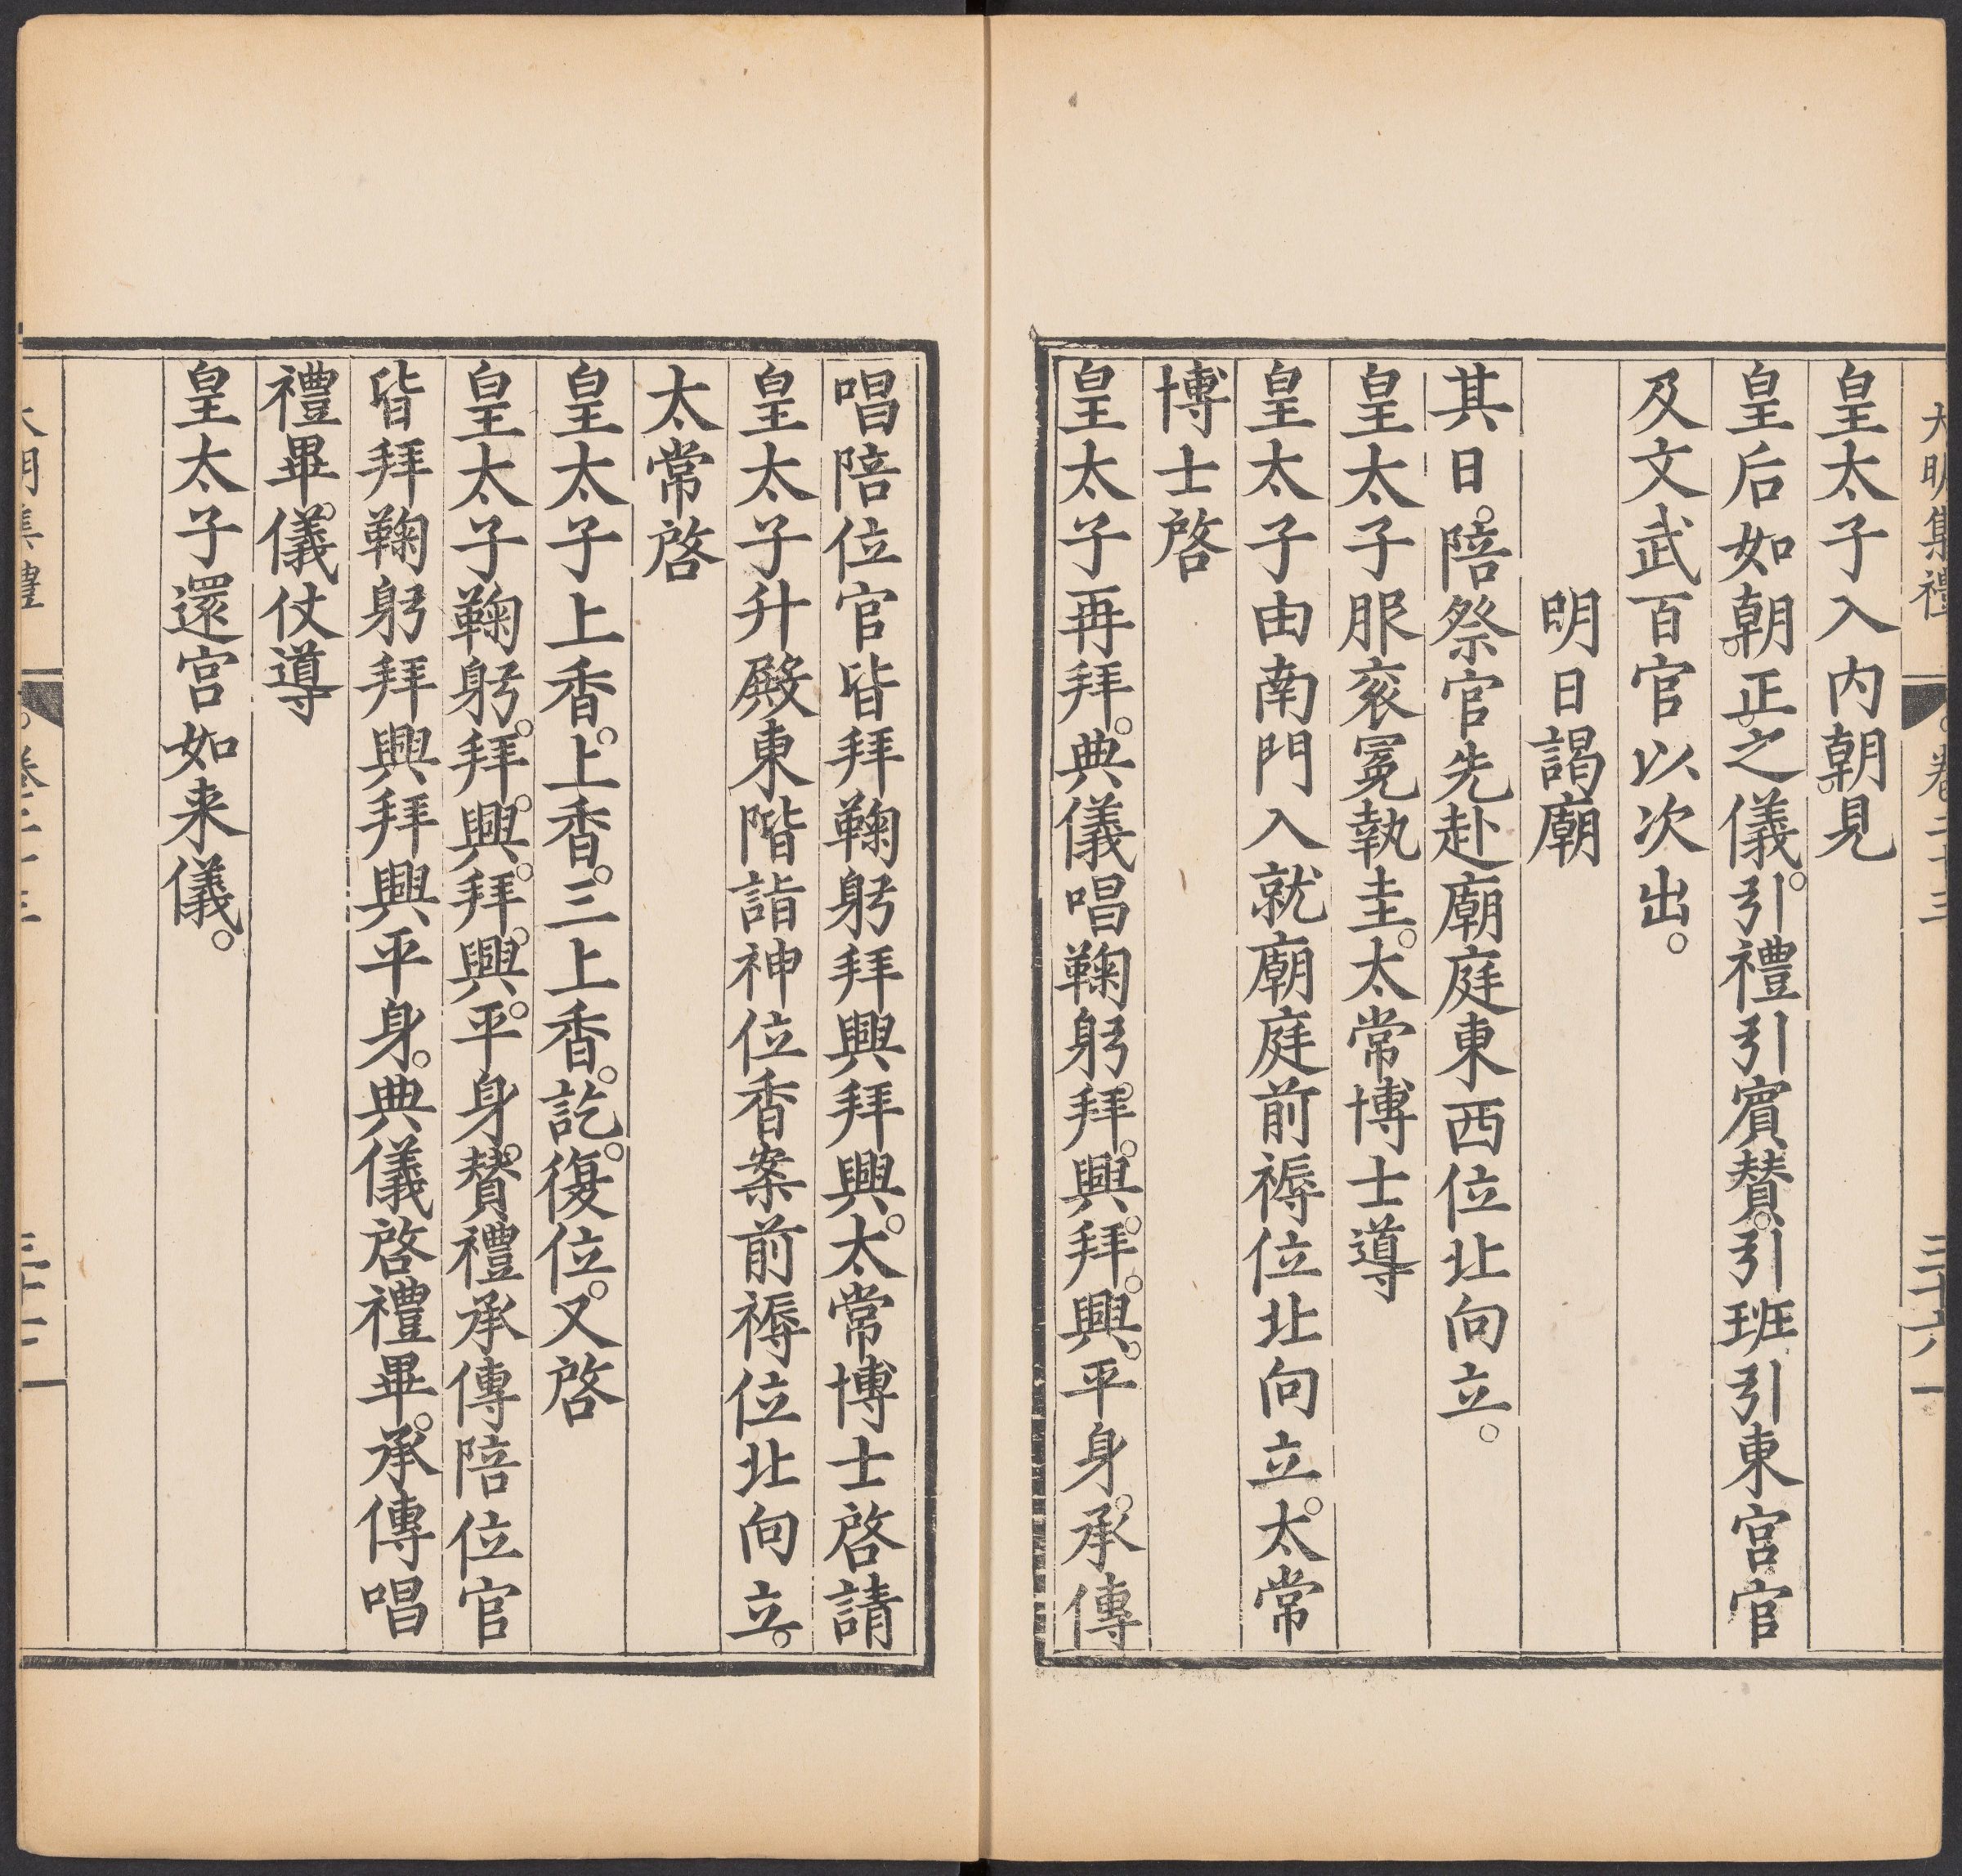 大明集禮 卷二十三 三十六
皇太子入内朝見
皇后如朝。正之儀。引禮引賓賛。引班引東宮官
及文武百官以次出。
明日謁廟
其日。陪祭官先赴廟庭東西位北向立。
皇太子服衮冕執圭。太常博士導
皇太子由南門入就廟庭前褥位北向立。太常
博士啓
皇太子再拜。典儀唱鞠躬。拜。興。拜。興。平身。承傳
唱陪位官皆拜鞠躬拜興拜興。太常博士啓請
皇太子升殿東階詣神位香案前褥位北向立。
太常啓
皇太子上香。上香。三上香。訖。復位。又啓
皇太子鞠躬。拜。興。拜。興。平身。賛禮承傳陪位官
皆拜鞠躬拜興拜興平身。典儀啓禮畢。承傳唱
禮畢。儀仗導
皇太子還宮如来儀。